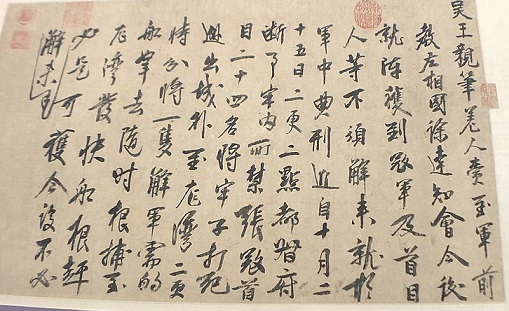 吳王親筆差人賫至軍前
教左相國徐達知會今後
就陣獲到寇軍及首目
人等不須解來就於
軍中典刑近自十月二
十五日二更二點都督府
斷了牢內所禁張寇首
目二十四名將牢子打死
越出城外至龍灣二更
時分將一隻解軍需的
船掌去隨時根捕至
龍灣發快船根趕
必是可獲今後不必
解來